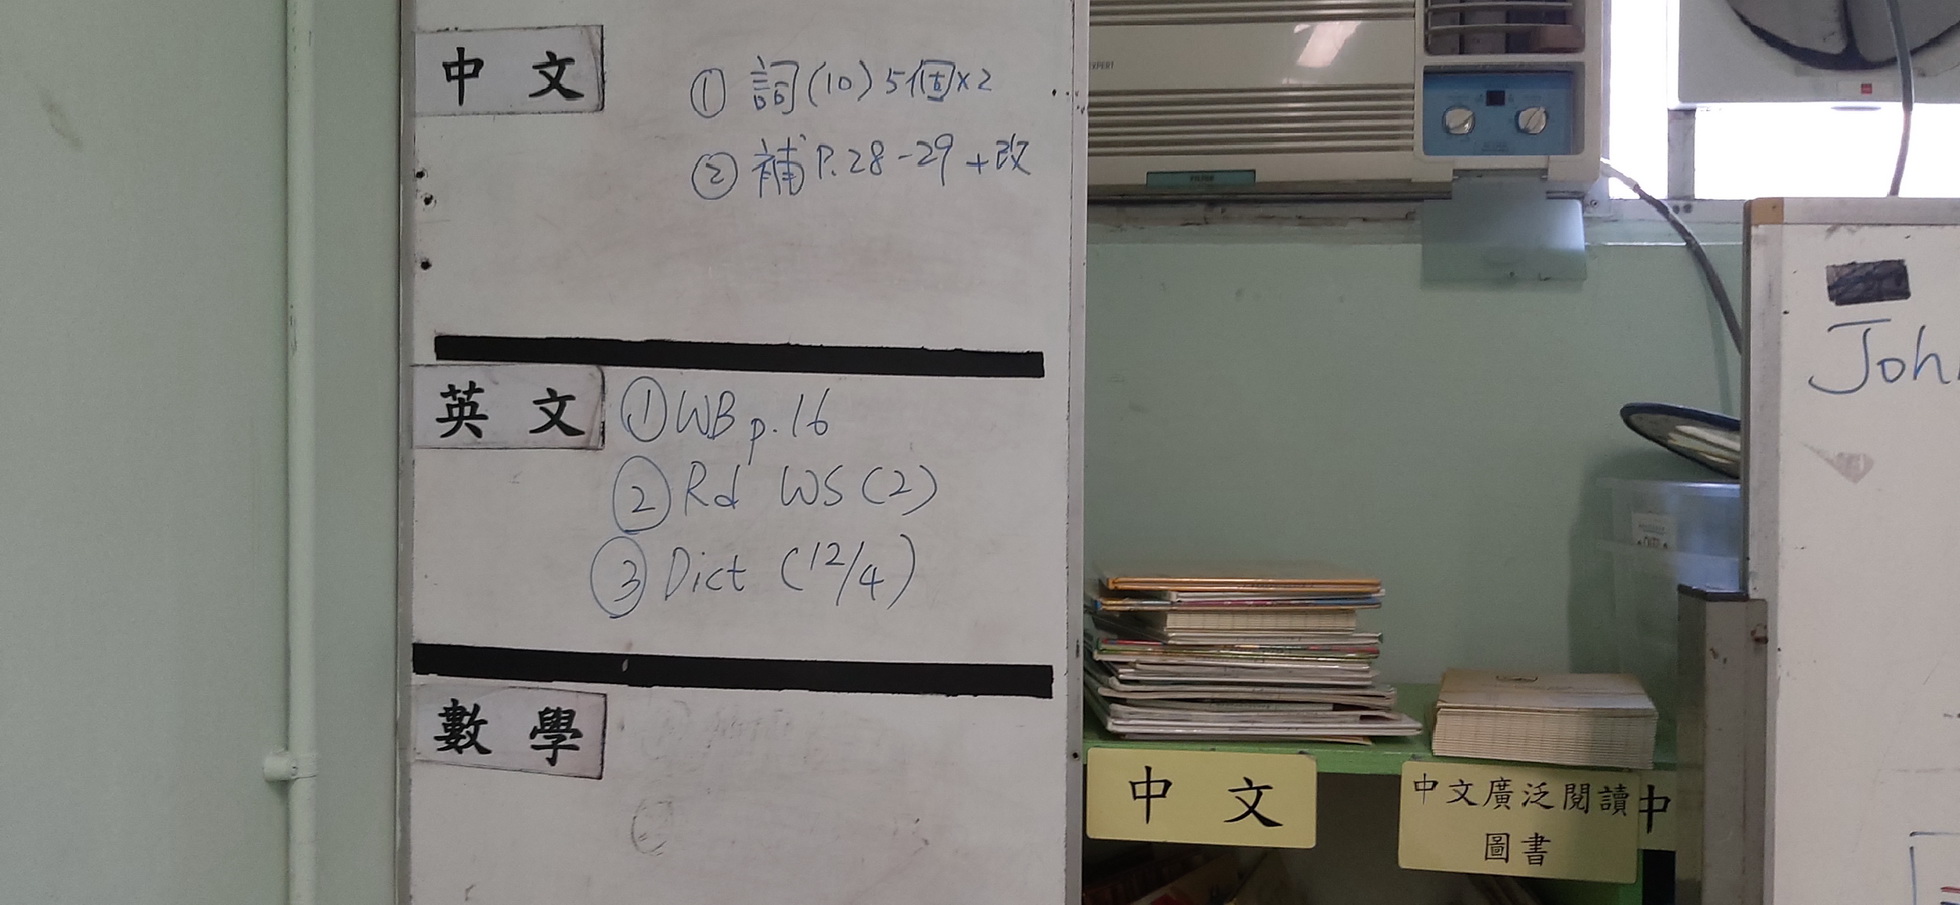 中文
① 詞(10) 5個x2
② 補 P.28-29 +改
英文
① WB p.16
② Rd WS (2)
③ Dict (12/4)
數學
中文
中文廣泛閱讀
圖書
中
Joh